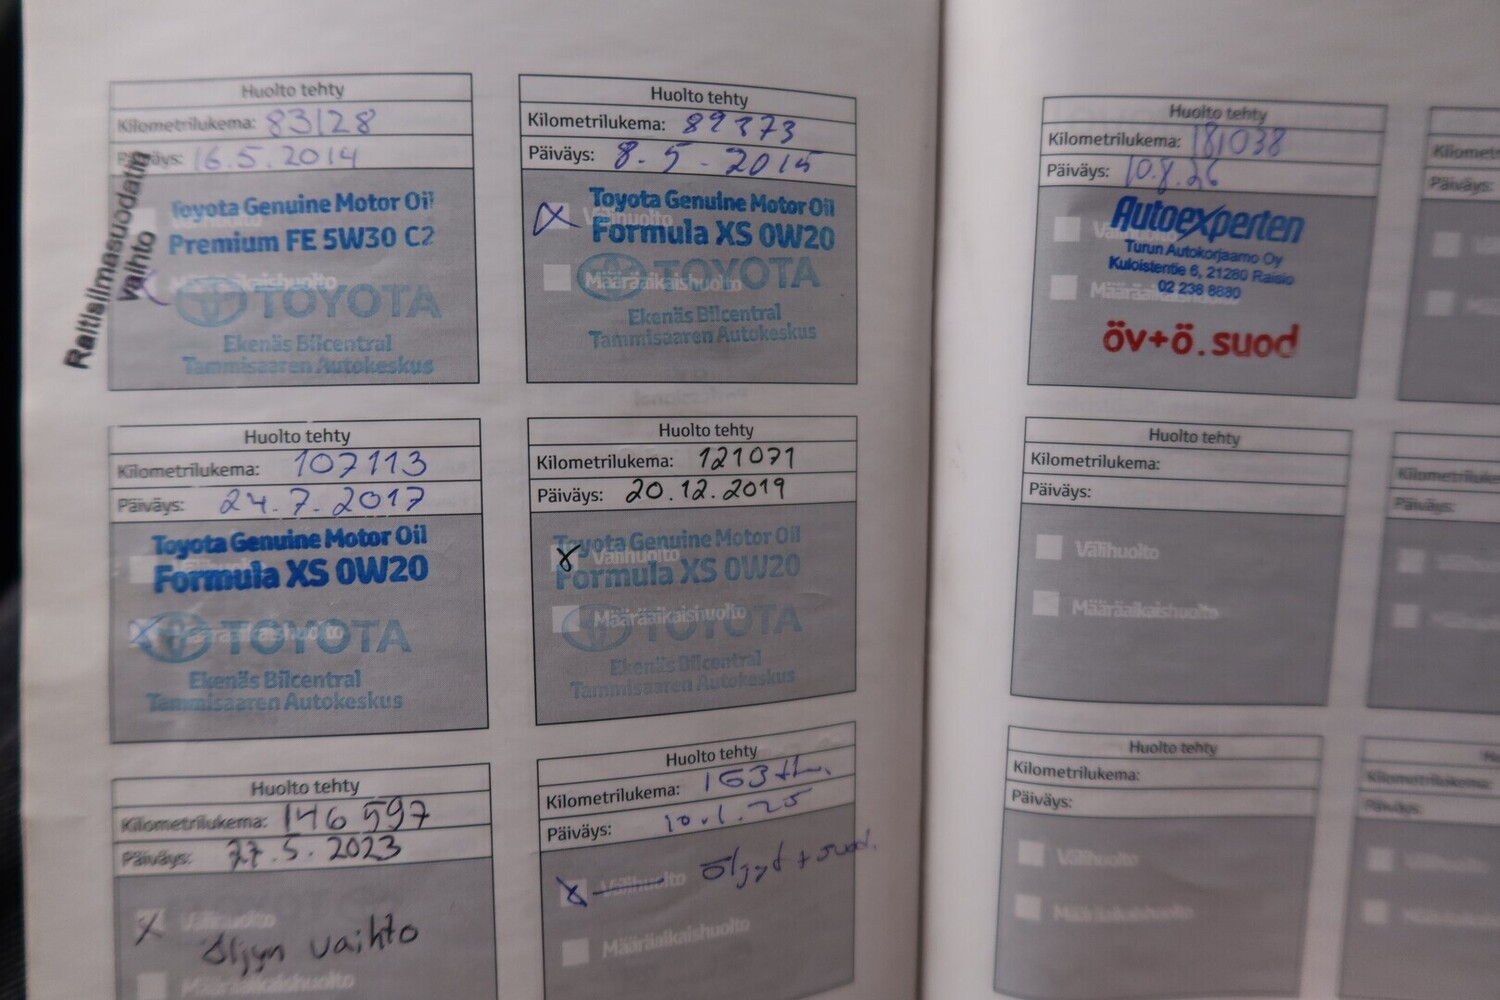 Huolto tehty
Kilometrilukema: 83128
Päiväys: 16.5.2014
Raitisilmasuodatin
vaihto
Toyota Genuine Motor Oil
Premium FE 5W30 C2
Määräaikaishuolto
TOYOTA
Ekenäs Bilcentral
Tammisaaren Autokeskus
Huolto tehty
Kilometrilukema: 89373
Päiväys: 8.5-2015
Toyota Genuine Motor Oil
Välihuolto
Formula XS 0W20
Määräaikaishuolto
TOYOTA
Ekenäs Bilcentral
Tammisaaren Autokeskus
Huolto tehty
Kilometrilukema: 107113
Päiväys: 24.7.2017
Toyota Genuine Motor Oil
Formula XS 0W20
Määräaikaishuolto
TOYOTA
Ekenäs Bilcentral
Tammisaaren Autokeskus
Huolto tehty
Kilometrilukema: 121071
Päiväys: 20.12.2019
Toyota Genuine Motor Oil
Välihuolto
Formula XS 0W20
Määräaikaishuolto
TOYOTA
Ekenäs Bilcentral
Tammisaaren Autokeskus
Huolto tehty
Kilometrilukema: 146597
Päiväys: 27.5.2023
Välihuolto
Öljyn vaihto
Määräaikaishuolto
Huolto tehty
Kilometrilukema: 163 th.
Päiväys: 10.1.25
Välihuolto Öljyt + suod.
Määräaikaishuolto
Huolto tehty
Kilometrilukema: 181038
Päiväys: 10.8.26
Autoexperten
Välihuolto
Turun Autokorjaamo Oy
Kuloistentie 6, 21280 Raisio
02 238 8880
Määräaikaishuolto
öv+ö.suod
Huolto tehty
Kilometrilukema:
Päiväys:
Välihuolto
Määräaikaishuolto
Huolto tehty
Kilometrilukema:
Päiväys:
Välihuolto
Määräaikaishuolto
Kilomet
Päiväys:
Kilometriluke
Päiväys:
Kilometrilukema
Päiväys: